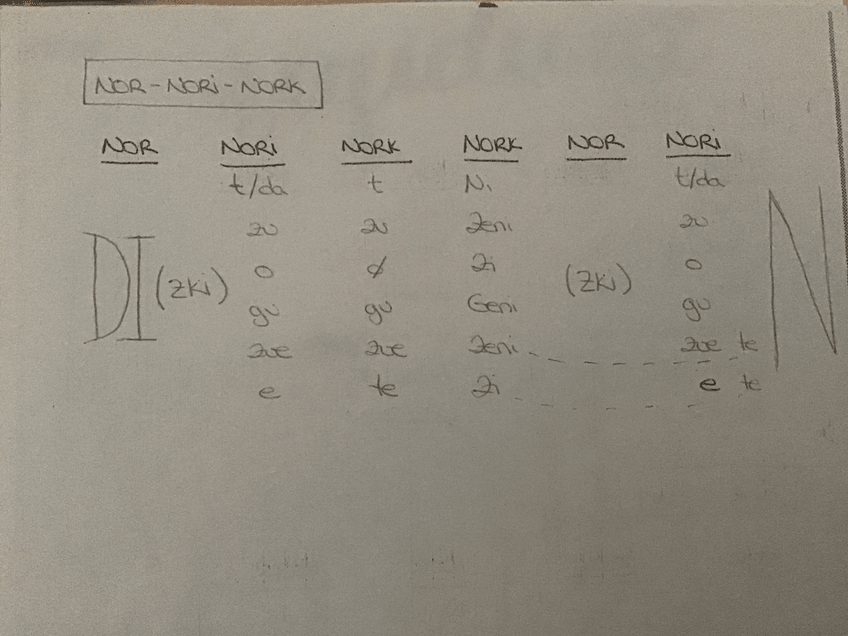 NOR-NORi-NORK
NOR NORi NORK NORK NOR NORi
t/da t Ni t/da
zu zu Zeni zu
o ø Zi o
DI (ZKi) gu gu Geni (ZKi) gu N
zue zue Zeni zue te
e te Zi e te